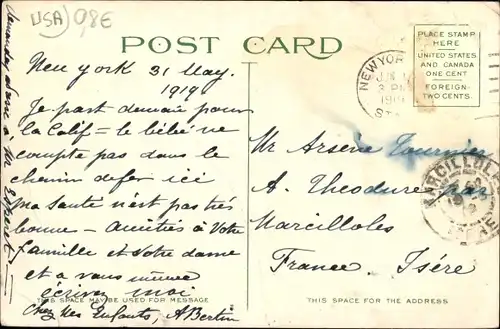 USA
98E
POST CARD
PLACE STAMP
HERE
UNITED STATES
AND CANADA
ONE CENT
FOREIGN-
TWO CENTS.
NEW YORK
3 PM
New York 31 May.
1919
Je part demain pour
la Calif - le bébé ne
compte pas dans le
chemin de fer ici
ma santé n'est pas très
bonne - Amitiés à Votre
famille et Votre dame
et a vous même
écrivez moi
chez Mes Enfants, A Bertin
demandez adresse à Mr
Mr Arsène Tournier
A. Theodure par
Marcilloles
France. Isère
MARCILLOLES
THIS SPACE MAY BE USED FOR MESSAGE
THIS SPACE FOR THE ADDRESS